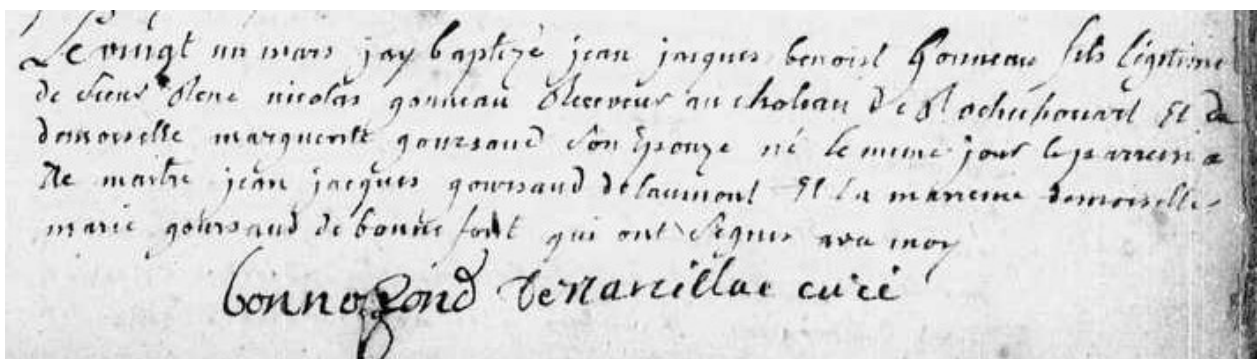 Le vingt un mars jay baptizé jean jacques benoist Gonneau fils legitime
de sieur Rene nicolas gonneau Receveur au chateau de Rochechouart Et de
demoiselle marguerite goursaud son Epouze né le meme jour le parrein a
ete maitre jean jacques goursaud delaumont Et la marreine demoiselle
marie goursaud de bonnefont qui ont signes avec moy
bonnefond De Marcillac curé